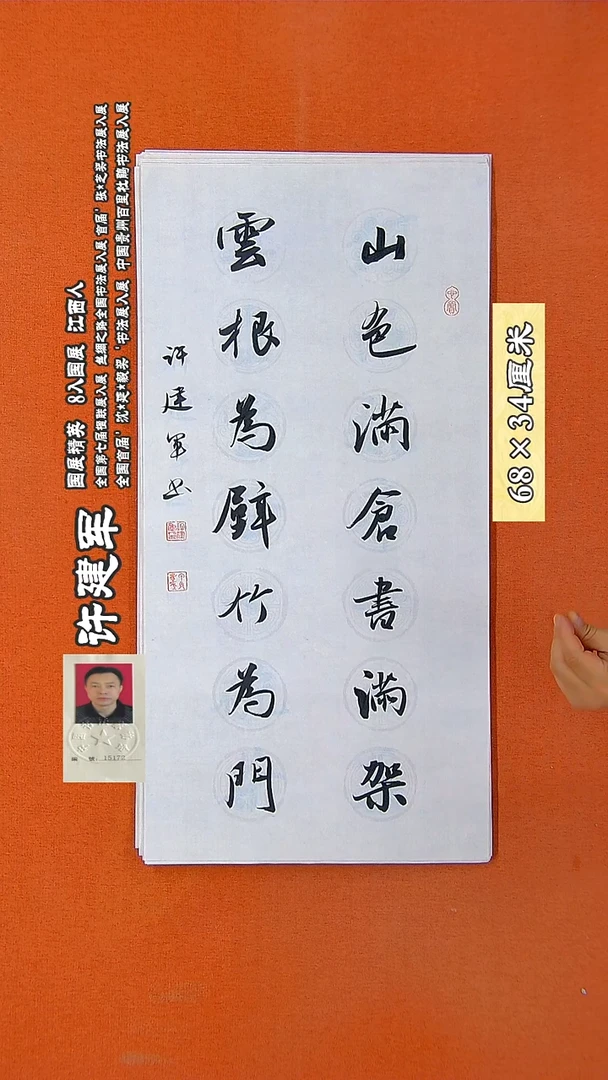 山色滿倉書滿架
雲根為壁竹為門
许建軍书
许建军
国展精英 8入国展 江西人
全国第七届楹联展入展 丝绸之路全国书法展入展 首届'张*芝奖书法展入展
全国首届'沈*延*毅奖'书法展入展 中国贵州百里杜鹃书法展入展
68×34厘米
编 号：15172